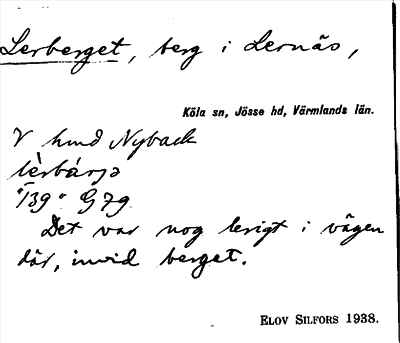 Lerberget, berg i Lernäs,
Köla sn, Jösse hd, Värmlands län.
V hmd Nyback
lèrbárjə
"139" G79
Det var nog lerigt i vägen
där, invid berget.
ELOV SILFORS 1938.